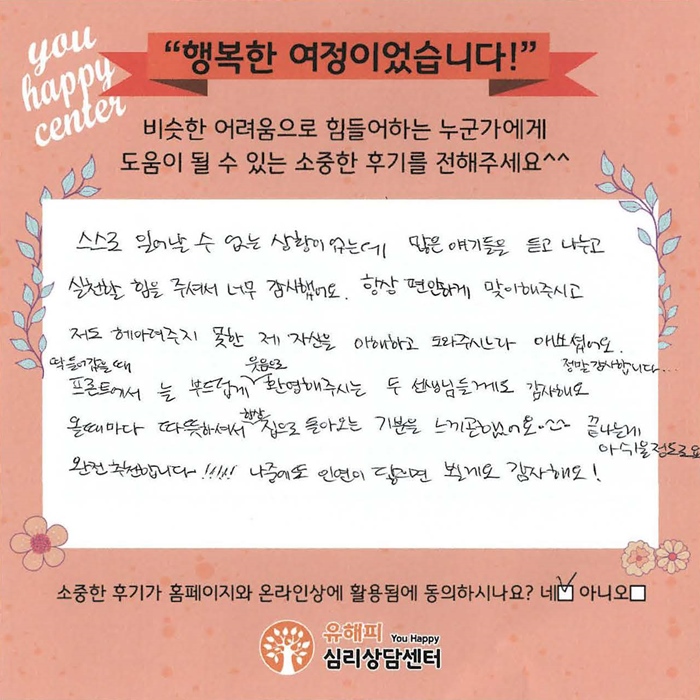 you
happy
center
“행복한 여정이었습니다!”
비슷한 어려움으로 힘들어하는 누군가에게
도움이 될 수 있는 소중한 후기를 전해주세요^^
스스로 일어날 수 없는 상황이었는데 많은 얘기들은 듣고 나누고
실천할 힘을 주셔서 너무 감사했어요. 항상 편안하게 맞이해주시고
저도 헤아려주지 못한 제 자신을 이해하고 도와주시느라 애쓰셨어요.
정말 감사합니다...
딱 들어갔을때
프론트에서 늘 부드럽게 웃음으로 환영해주시는 두 선생님들께도 감사해요
올때마다 따뜻하셔서 항상 집으로 돌아오는 기분을 느끼곤했어요^^ 끝나는게
아쉬울정도로요
완전 추천합니다!!!!! 나중에도 인연이 닿으면 뵐게요 감사해요!
소중한 후기가 홈페이지와 온라인상에 활용됨에 동의하시나요? 네 아니오
유해피 You Happy
심리상담센터